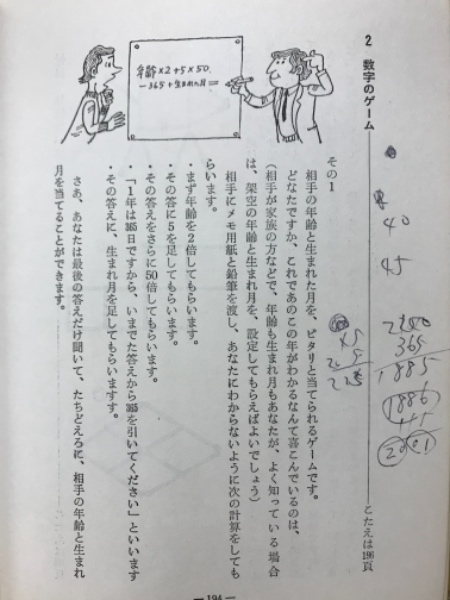 2 数字のゲーム
こたえは196頁
年齢×2+5×50
−365+生まれた月=
その1
相手の年齢と生まれた月を、ピタリと当てられるゲームです。
どなたですか、これであのこの年がわかるなんて喜こんでいるのは、
(相手が家族の方などで、年齢も生まれ月もあなたが、よく知っている場合
は、架空の年齢と生まれ月を、設定してもらえばよいでしょう)
相手にメモ用紙と鉛筆を渡し、あなたにわからないように次の計算をしても
らいます。
・まず年齢を2倍してもらいます。
・その答に5を足してもらいます。
・その答えをさらに50倍してもらいます。
・「1年は365日ですから、いまでた答えから365を引いてください」といいます
・その答えに、生まれ月を足してもらいますす。
さあ、あなたは最後の答えだけ聞いて、たちどえろに、相手の年齢と生まれ
月を当てることができます。
40
45
2250
365
1885
1886
2001
45
5
225
— 194 —